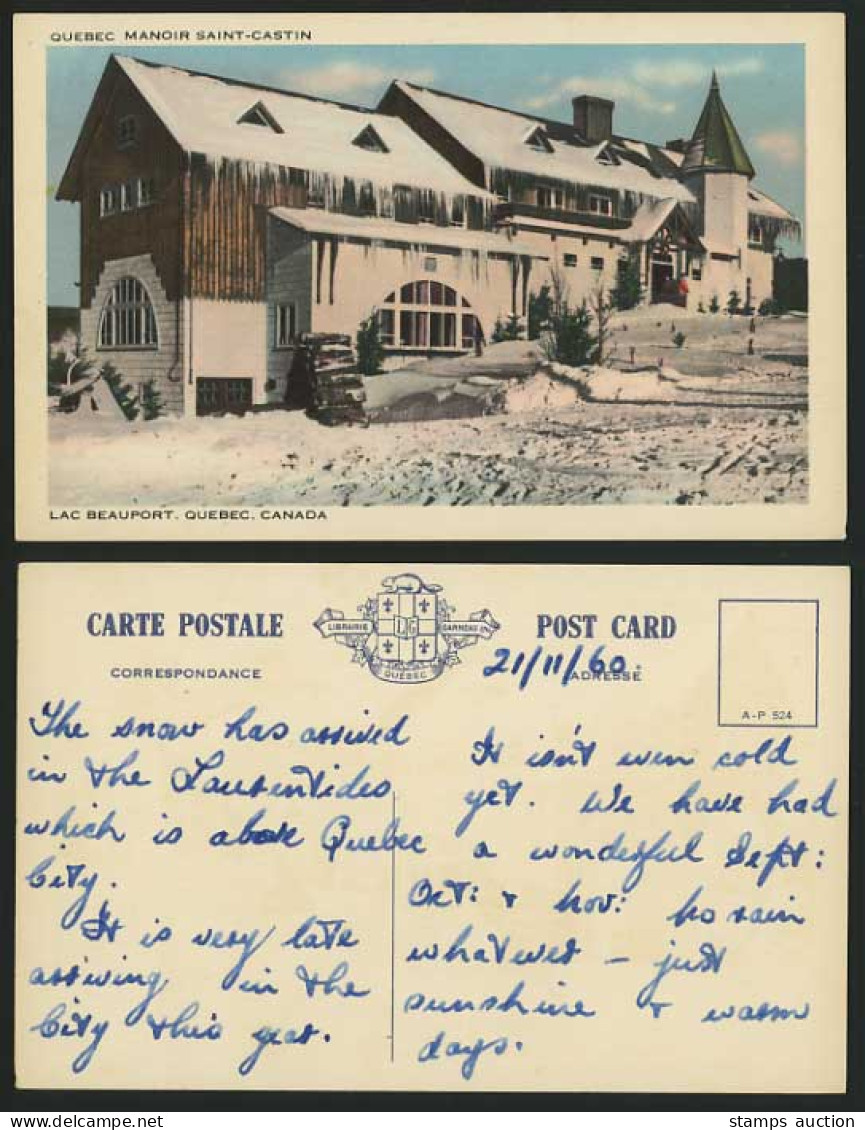 QUEBEC MANOIR SAINT-CASTIN
LAC BEAUPORT. QUEBEC. CANADA
CARTE POSTALE
CORRESPONDANCE
LIBRAIRIE GARNEAU
LG
QUÉBEC
POST CARD
ADRESSE
21/11/60.
A-P 524
The snow has arrived
in the Laurentides
which is above Quebec
City.
It is very late
arriving in the
City this year.
It isn't even cold
yet. We have had
a wonderful Sept:
Oct: & Nov: No rain
whatever - just
sunshine & warm
days.
stamps auction